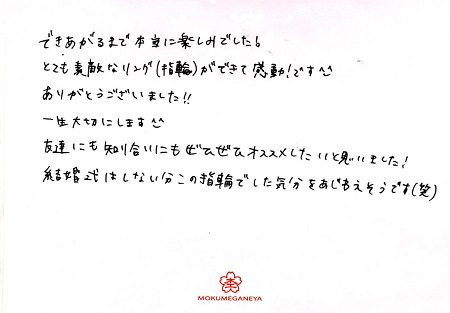 できあがるまで本当に楽しみでした!
とても素敵なリング(指輪)ができて感動!です^^
ありがとうございました!!
一生大切にします^^
友達にも知り合いにもぜひぜひオススメしたいと思いました!
結婚式はしない分この指輪でした気分をあじわえそうです(笑)
MOKUMEGANEYA